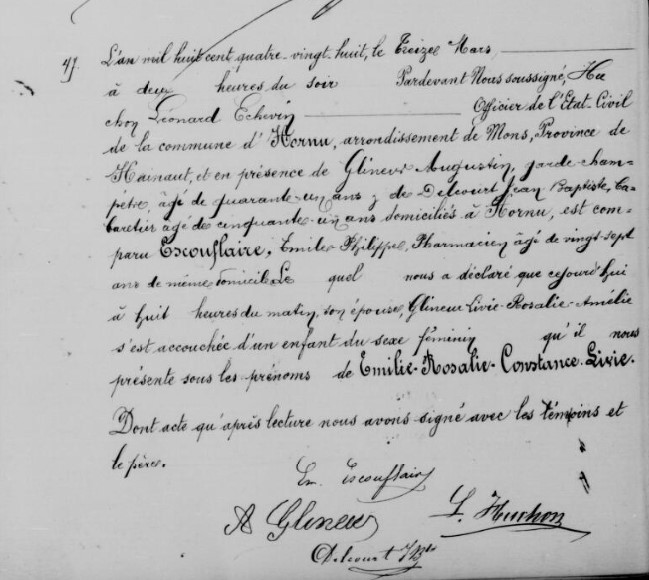 47.
L'an mil huit cent quatre-vingt-huit, le Treize Mars
à deux heures du soir Pardevant Nous soussigné, Hu
chon Léonard Echevin Officier de l'Etat-Civil
de la commune d'Hornu, arrondissement de Mons, Province de
Hainaut, et en présence de Glineur Augustin, garde-cham-
petre âgé de quarante-un ans & de Delcourt Jean Baptiste, Ca-
baretier âgé de cinquante-un ans domiciliés à Hornu, est com-
paru Escouflaire, Emile Philippe, Pharmacien âgé de vingt-sept
ans de même domicile Le quel nous a déclaré que cejourd'hui
à huit heures du matin, son épouse, Glineur Livie-Rosalie-Amélie
s'est accouchée d'un enfant du sexe féminin qu'il nous
présente sous les prénoms de Emilie-Rosalie-Constance-Livie.
Dont acte qu'après lecture nous avons signé avec les témoins et
le père.
Em. Escouflaire
A Glineur L. Huchon
Delcourt JBte